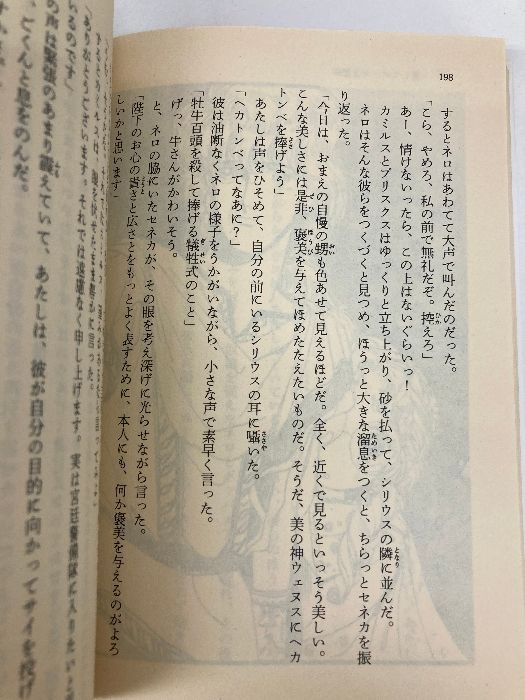 198
するとネロはあわてて大声で叫んだのだった。
「こら、やめろ、私の前で無礼だぞ。控えろ」
あー、情けないったら、この上はないぐらいっ！
カミルスとプリスクスはゆっくりと立ち上がり、砂を払って、シリウスの隣に並んだ。
ネロはそんな彼らをつくづくと見つめ、ほうっと大きな溜息をつくと、ちらっとセネカを振
り返った。
「今日は、おまえの自慢の甥も色あせて見えるほどだ。全く、近くで見るといっそう美しい。
こんな美しさには是非、褒美を与えてほめたたえたいものだ。そうだ、美の神ウェヌスにヘカ
トンベを捧げよう」
あたしは声をひそめて、自分の前にいるシリウスの耳に囁いた。
「ヘカトンベってなあに？」
彼は油断なくネロの様子をうかがいながら、小さな声で素早く言った。
「牡牛百頭を殺して捧げる犠牲式のこと」
げっ、牛さんがかわいそう。
と、ネロの脇にいたセネカが、その眼を考え深げに光らせながら言った。
「陛下のお心の貴さと広さとをもっとよく表すために、本人にも、何か褒美を与えるのがよろ
しいかと思います」
「ありがとうございます。それでは遠慮なく申し上げます。実は宮廷警備隊に入りたいと
いるのです」
の声は緊張のあまり震えていて、あたしは、彼が自分の目的に向かってサイを投げ
、ごくんと息をのんだ。